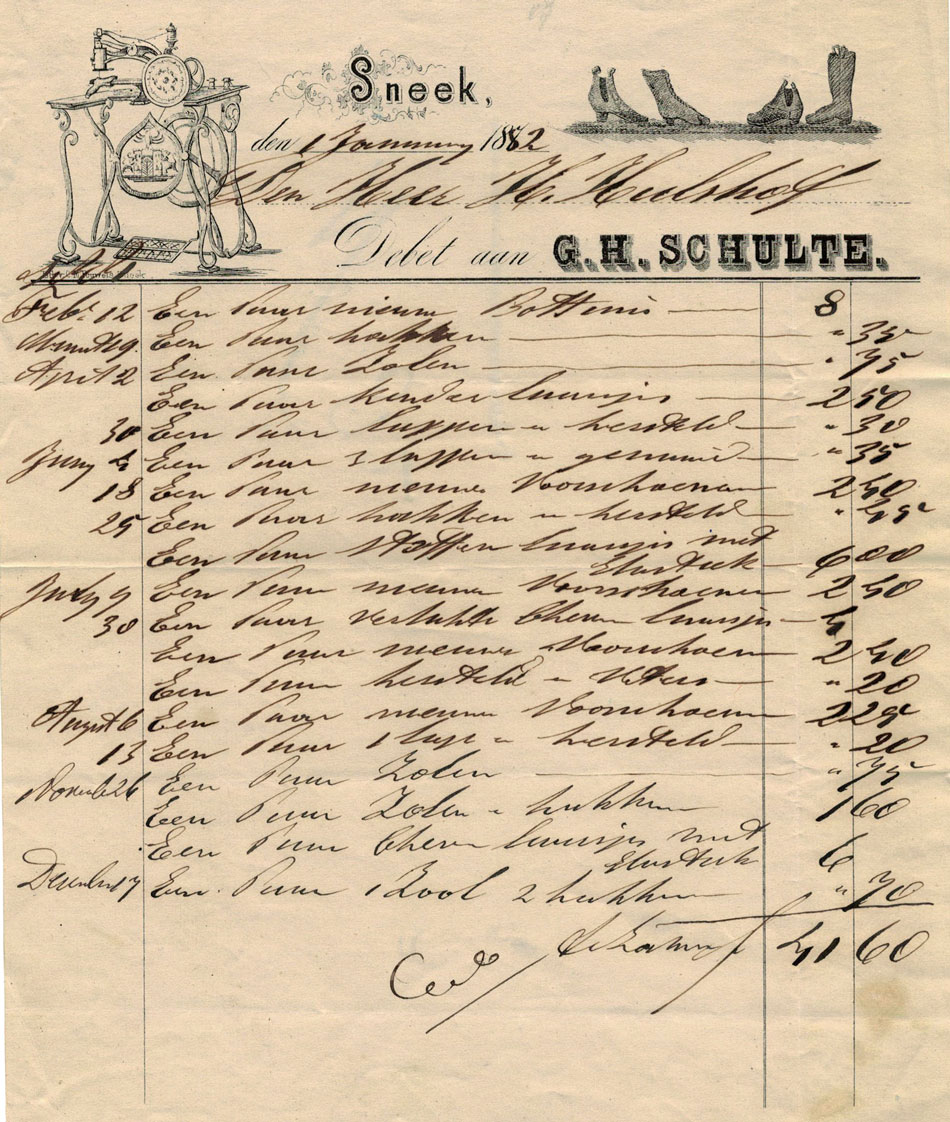 Sneek,
den 1 January 1882
Den Heer H. Hulshof
Debet aan G. H. SCHULTE.
Feb. 12 Een Paar nieuwe Bottinis 8
Maart 19. Een Paar hakken " 35
April 2 Een Paar Zolen " 75
Een Paar kinder laarsjes 2 50
30 Een Paar lappen en hersteld " 30
Juny 4 Een Paar 3 lappen en genaaid " 35
18 Een Paar nieuwe Voorschoenen 2 50
25 Een Paar hakken en hersteld " 45
Een Paar Stoffen laarsjes met
Elastiek 6 00
July 9 Een Paar nieuwe Voorschoenen 2 50
30 Een Paar verlakte laarsjes 4
Een Paar nieuwe Voorschoen 2 40
Een Paar hersteld en Veters " 20
August 6 Een Paar nieuwe Voorschoen 2 25
13 Een Paar 1 lap en hersteld " 20
Novemb 26 Een Paar Zolen " 75
Een Paar Zolen en hakken 1 60
Een Paar laarsjes met
Elastiek 6
December 17 Een Paar 1 Zool 2 hakken " 70
41 60